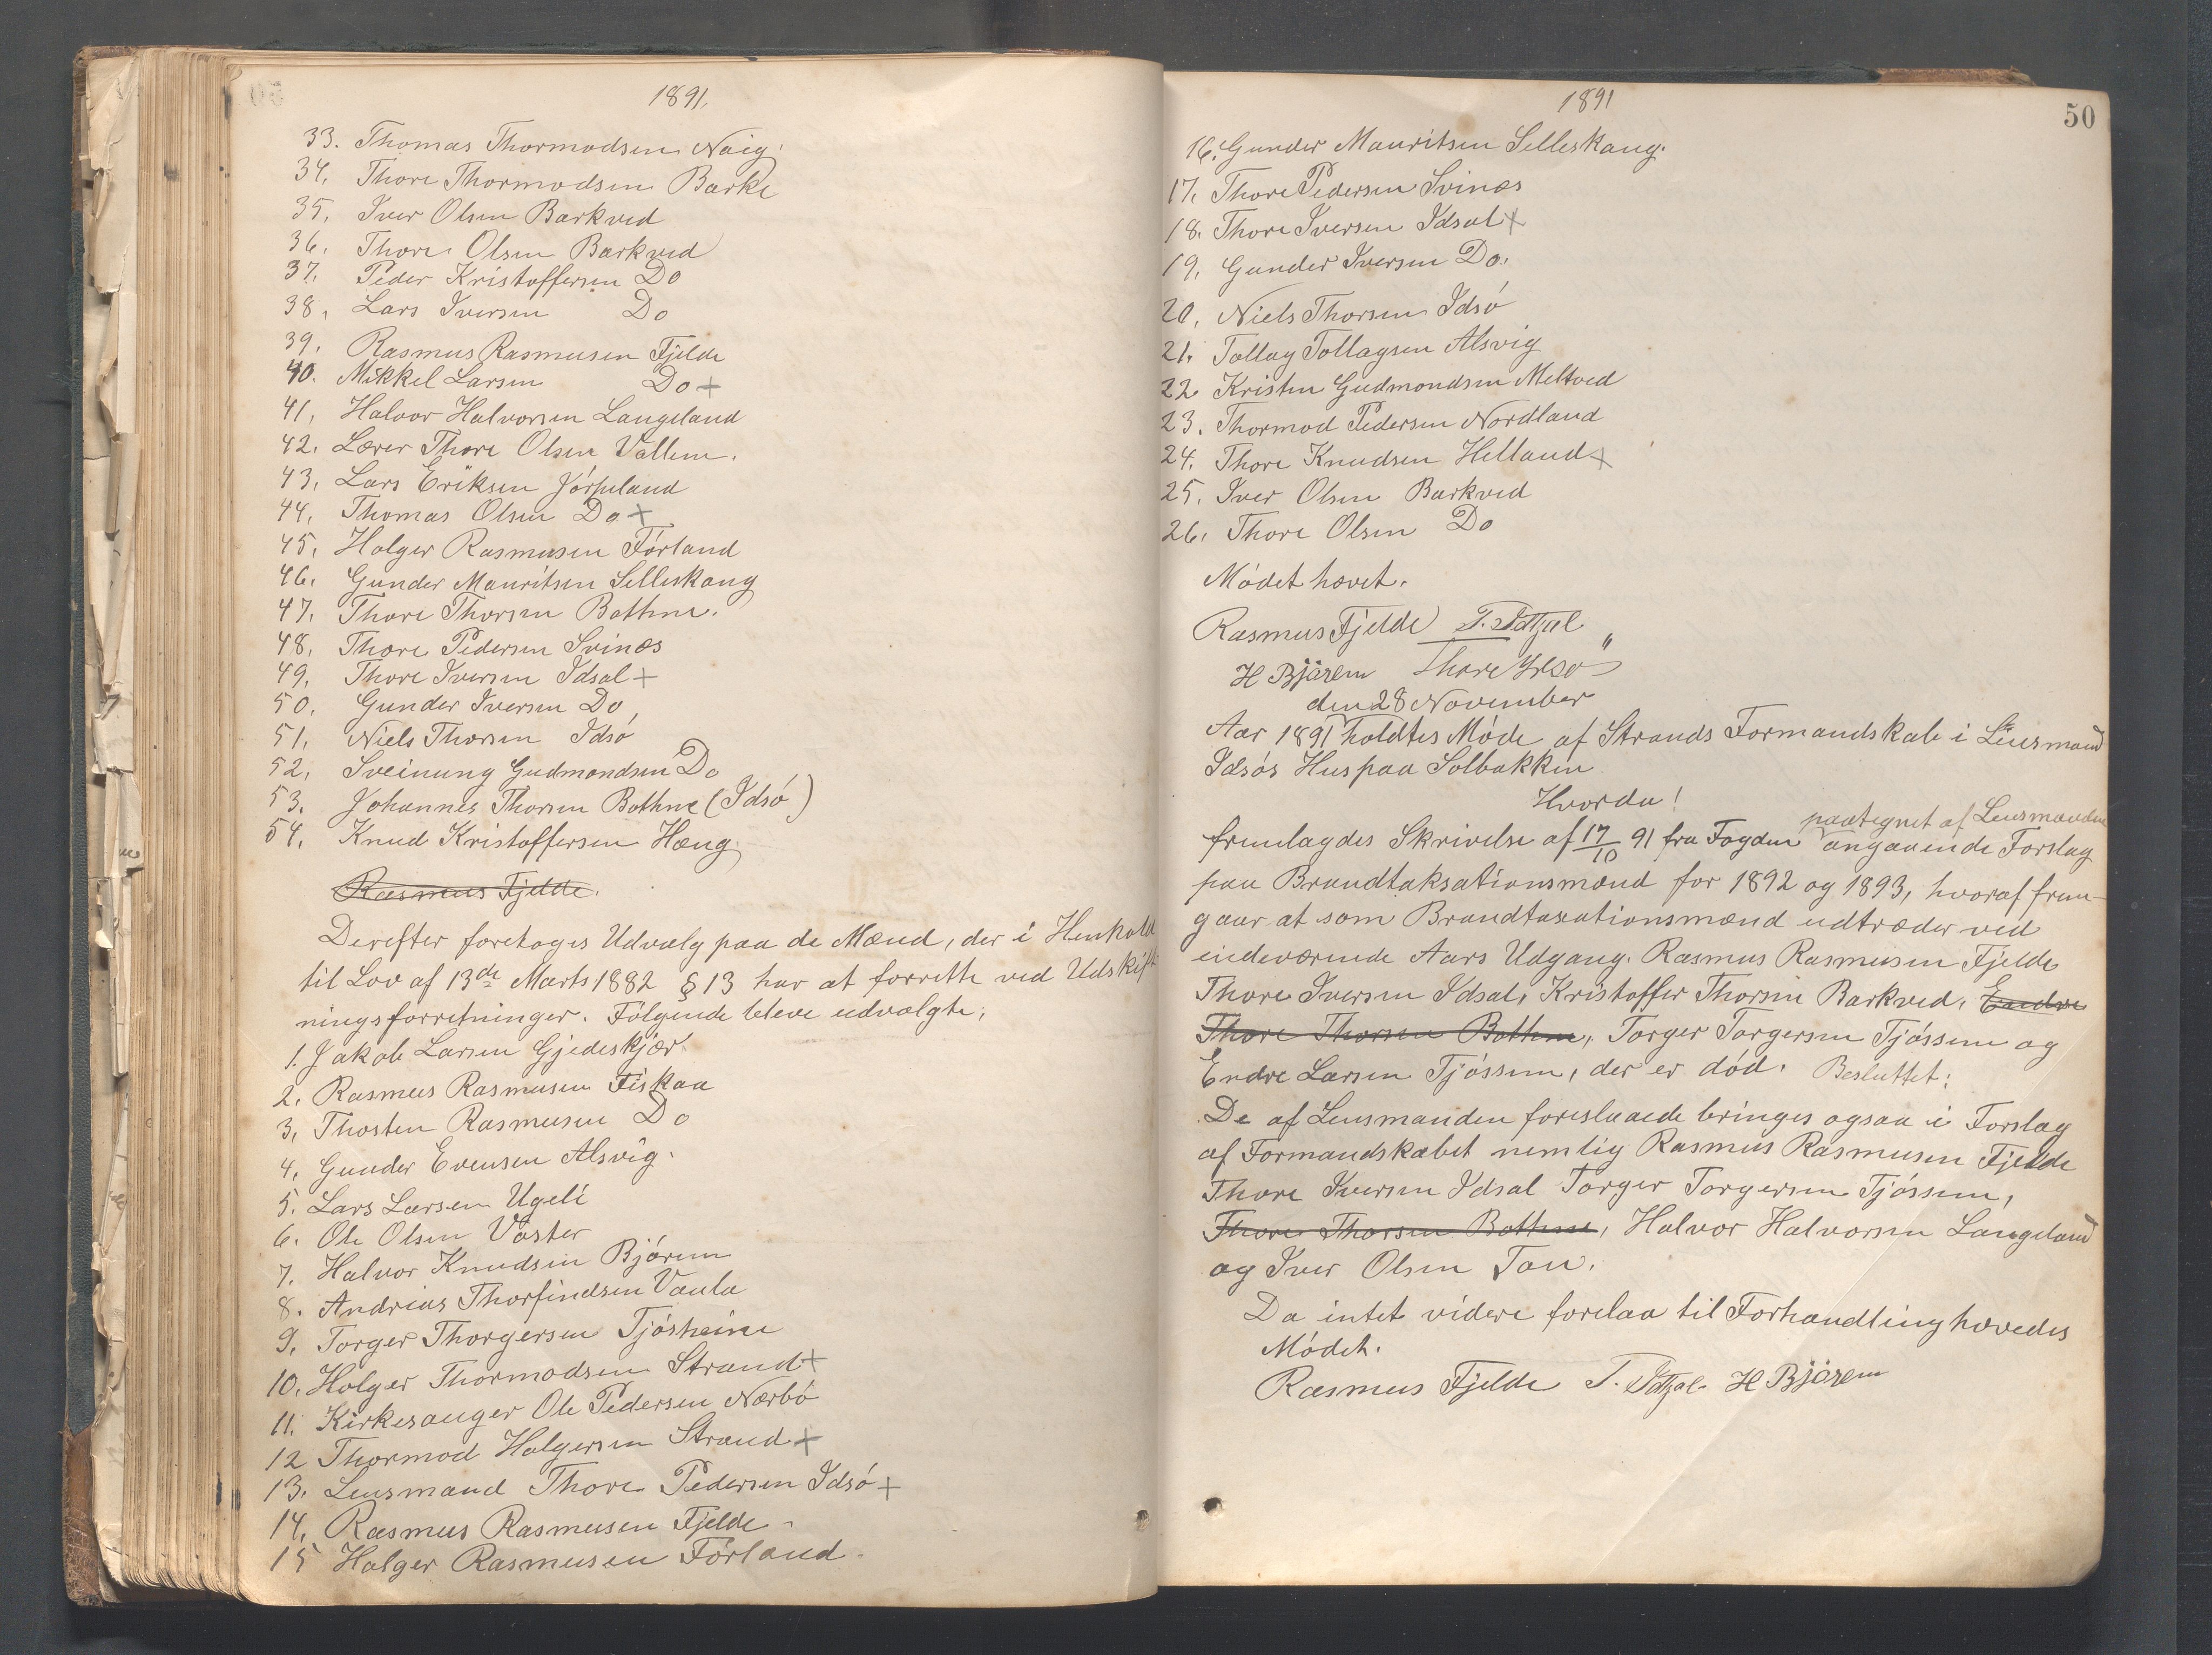 1891.
33. Thomas Thormodsen Naig.
34. Thore Thormodsen Barke
35. Iver Olsen Barkved
36. Thore Olsen Barkved
37. Peder Kristoffersen Do
38. Lars Iversen Do
39. Rasmus Rasmusen Fjelde
40. Mikkel Larsen Do +
41. Halvor Halvorsen Langeland
42. Lærer Thore Olsen Vallem.
43. Lars Eriksen Jörpeland
44. Thomas Olsen Do +
45. Holger Rasmusen Förland
46. Gunder Mauritsen Selleskaug
47. Thore Thorsen Bothne.
48. Thore Pedersen Svines
49. Thore Iversen Idsal +
50. Gunder Iversen Do
51. Niels Thorsen Idsö
52. Sveinung Gudmondsen Do
53. Johannes Thorsen Bothne (Idsö)
54. Knud Kristoffersen Hæng.
Rasmus Fjelde.
Derefter foretoges Udvælg paa de Mænd, der i Henhold
til Lov af 13de Marts 1882 § 13 har at forrette ved Udskift-
ningsforretninger. Fölgende bleve udvalgte;
1. Jakob Larsen Gjedeskjær
2. Rasmus Rasmusen Fiskaa
3. Thosten Rasmusen Do
4. Gunder Evensen Alsvig.
5. Lars Larsen Ugeli
6. Ole Olsen Vaster
7. Halvor Knudsen Björeim
8. Andrias Thorfindsen Vaula
9. Torger Thorgersen Tjösheim
10. Holger Thormodsen Strand +
11. Kirkesanger Ole Pedersen Nærbö
12 Thormod Holgersen Strand +
13. Lensmand Thore Pedersen Idsö +
14. Rasmus Rasmusen Fjelde -
15 Holger Rasmusen Förland.
1891
50
16. Gunder Mauritsen Selleskaug.
17. Thore Pedersen Svines
18. Thore Iversen Idsal +
19. Gunder Iversen Do.
20. Niels Thorsen Idsö
21. Tollag Tollagsen Alsvig
22 Kristen Gudmondsen Meltved
23. Thormod Pedersen Nordland
24. Thore Knudsen Helland +
25. Iver Olsen Barkved
26. Thore Olsen Do
Mödet hævet.
Rasmus Fjelde T. Idtzal
H Björem Thore Idsö
den 28 November
Aar 1891 holdtes Möde af Strands Formandskab i Lensmand
Idsös Hus paa Solbakken
Hvorda!
paategnet af Lensmanden
fremlagdes Skrivelse af 17/10 91 fra Fogden angaaende Forslag
paa Brandtaksationsmænd for 1892 og 1893, hvoraf frem-
gaar at som Brandtaxationsmænd udtræder ved
indeværende Aars Udgang. Rasmus Rasmusen Fjelde
Thore Iversen Idsal, Kristoffer Thorsen Barkved, Endre
Thore Thorsen Bothne, Torger Torgersen Tjössem og
Endre Larsen Tjössem, der er död. Besluttet:
De af Lensmanden foreslaaede bringes ogsaa i Forslag
af Formandskabet nemlig Rasmus Rasmusen Fjelde
Thore Iversen Idsal Torger Torgersen Tjössem,
Thore Thorsen Bothne, Halvor Halvorsen Langeland
og Iver Olsen Tau.
Da intet videre forelaa til Forhandling hævedes
Mödet.
Rasmus Fjelde T. Idtzal H Björem